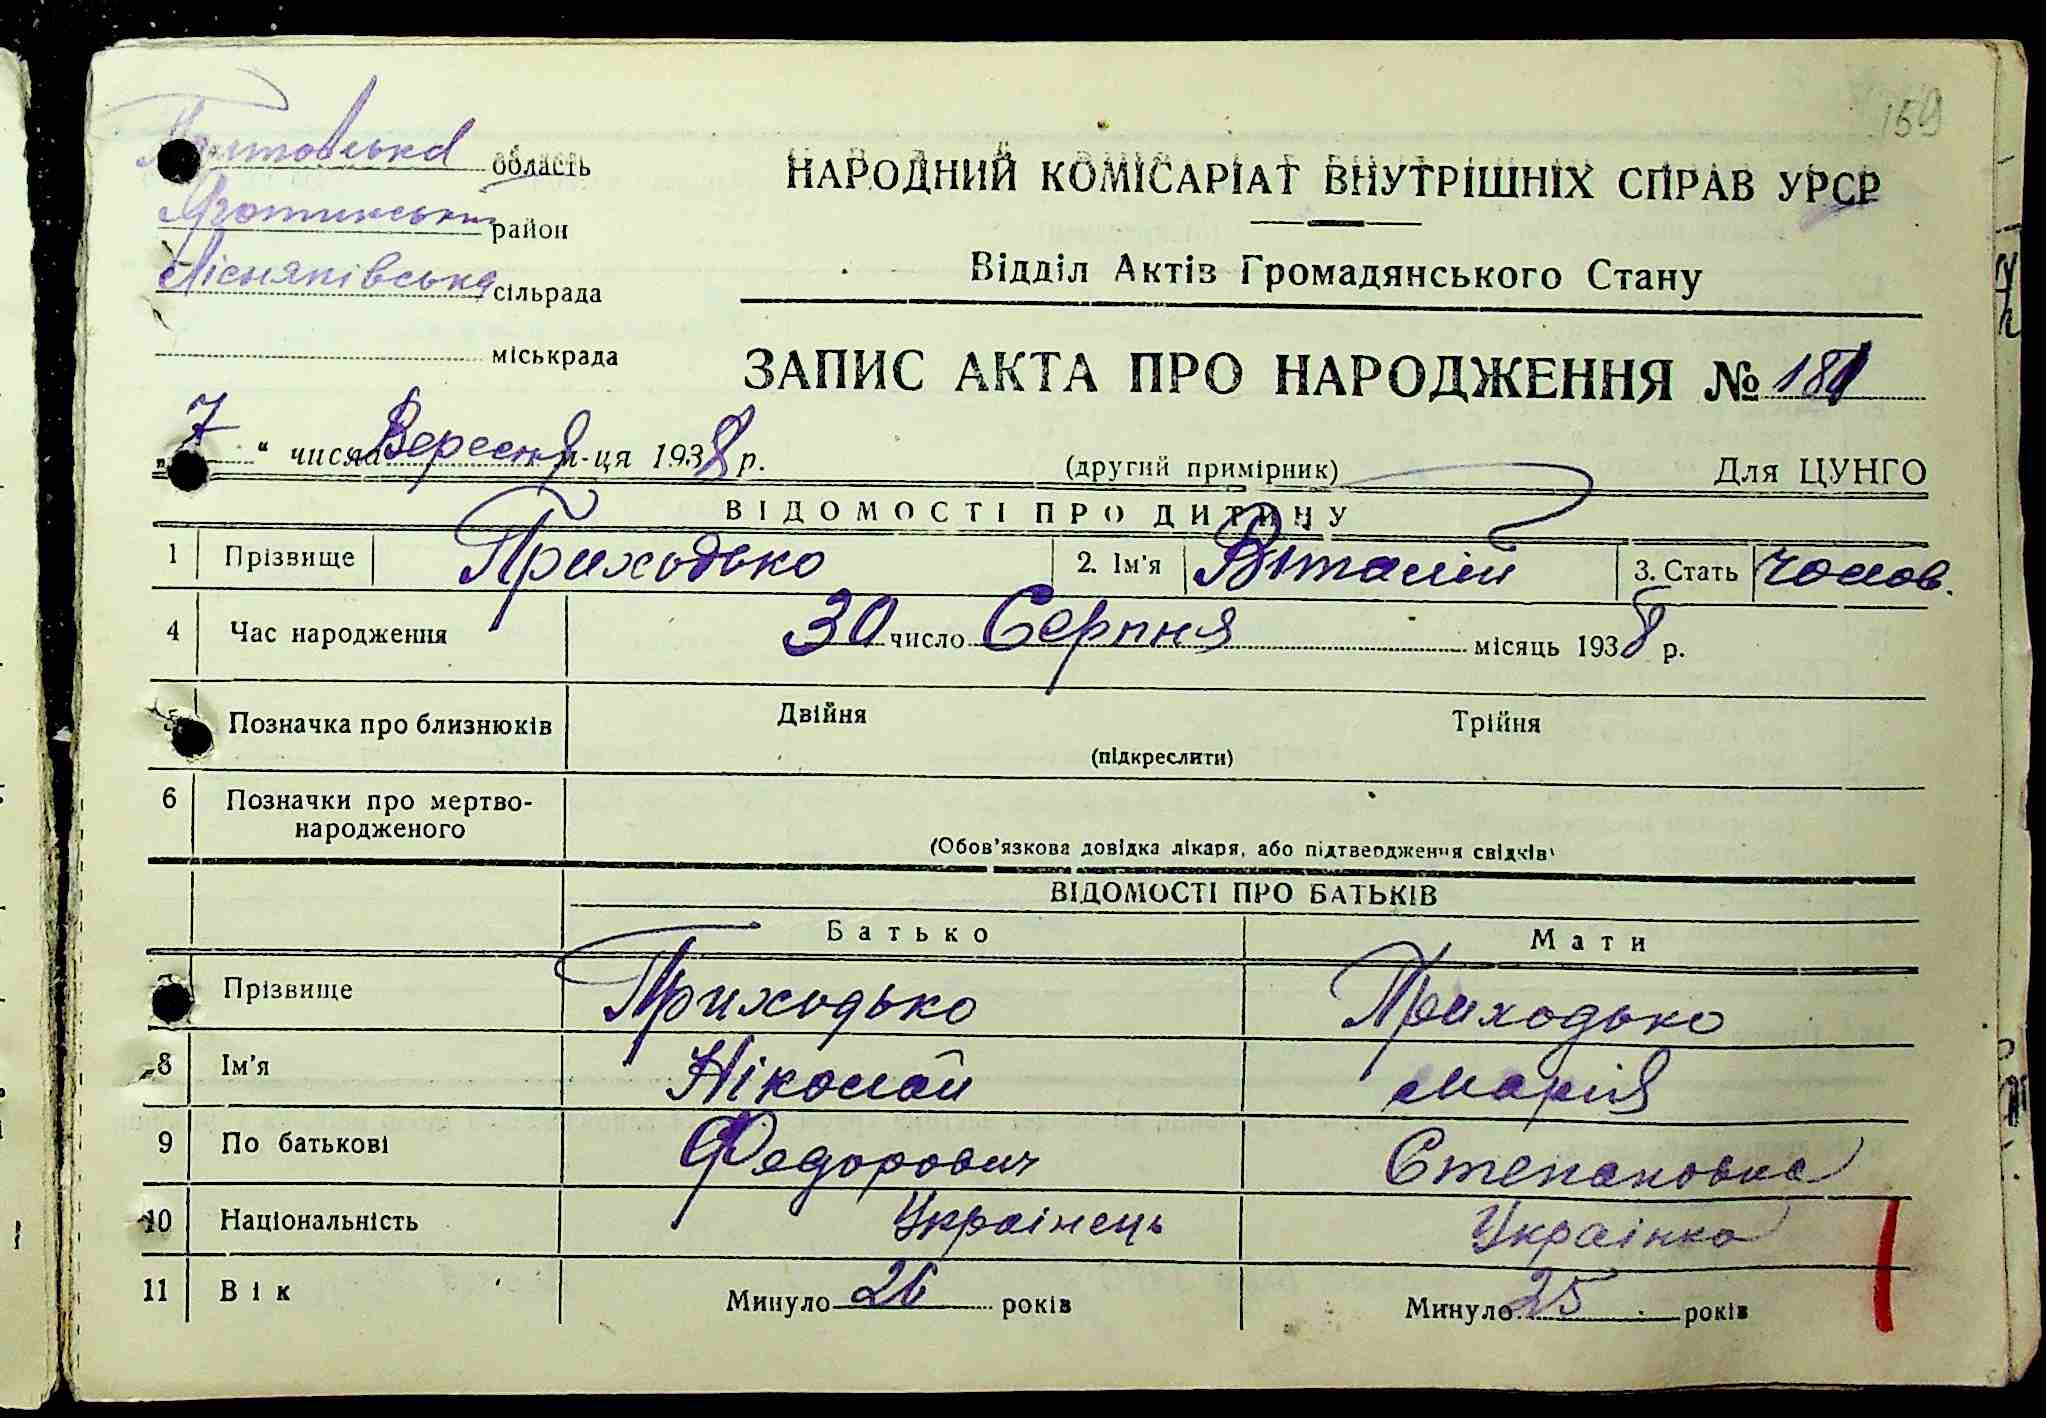 159
Полтавська область
Яготинськи район
Лісняківська сільрада
міськрада
НАРОДНИЙ КОМІСАРІАТ ВНУТРІШНІХ СПРАВ УРСР
Відділ Актів Громадянського Стану
ЗАПИС АКТА ПРО НАРОДЖЕННЯ №
„7“ числа Вересня м-ця 1938 р.
(другий примірник)
Для ЦУНГО
ВІДОМОСТІ ПРО ДИТИНУ
1 Прізвище Приходько 2. Ім'я Віталій 3. Стать чолов.
4 Час народження 30 число Серпня місяць 1938 р.
5 Позначка про близнюків Двійня Трійня
(підкреслити)
6 Позначки про мертво-
народженого
(Обов'язкова довідка лікаря, або підтвердження свідків)
ВІДОМОСТІ ПРО БАТЬКІВ
Батько Мати
Прізвище Приходько Приходько
8 Ім'я Ніколай Марія
9 По батькові Федорович Степановна
10 Національність Українець Українка
11 Вік Минуло 26 років Минуло 25 років